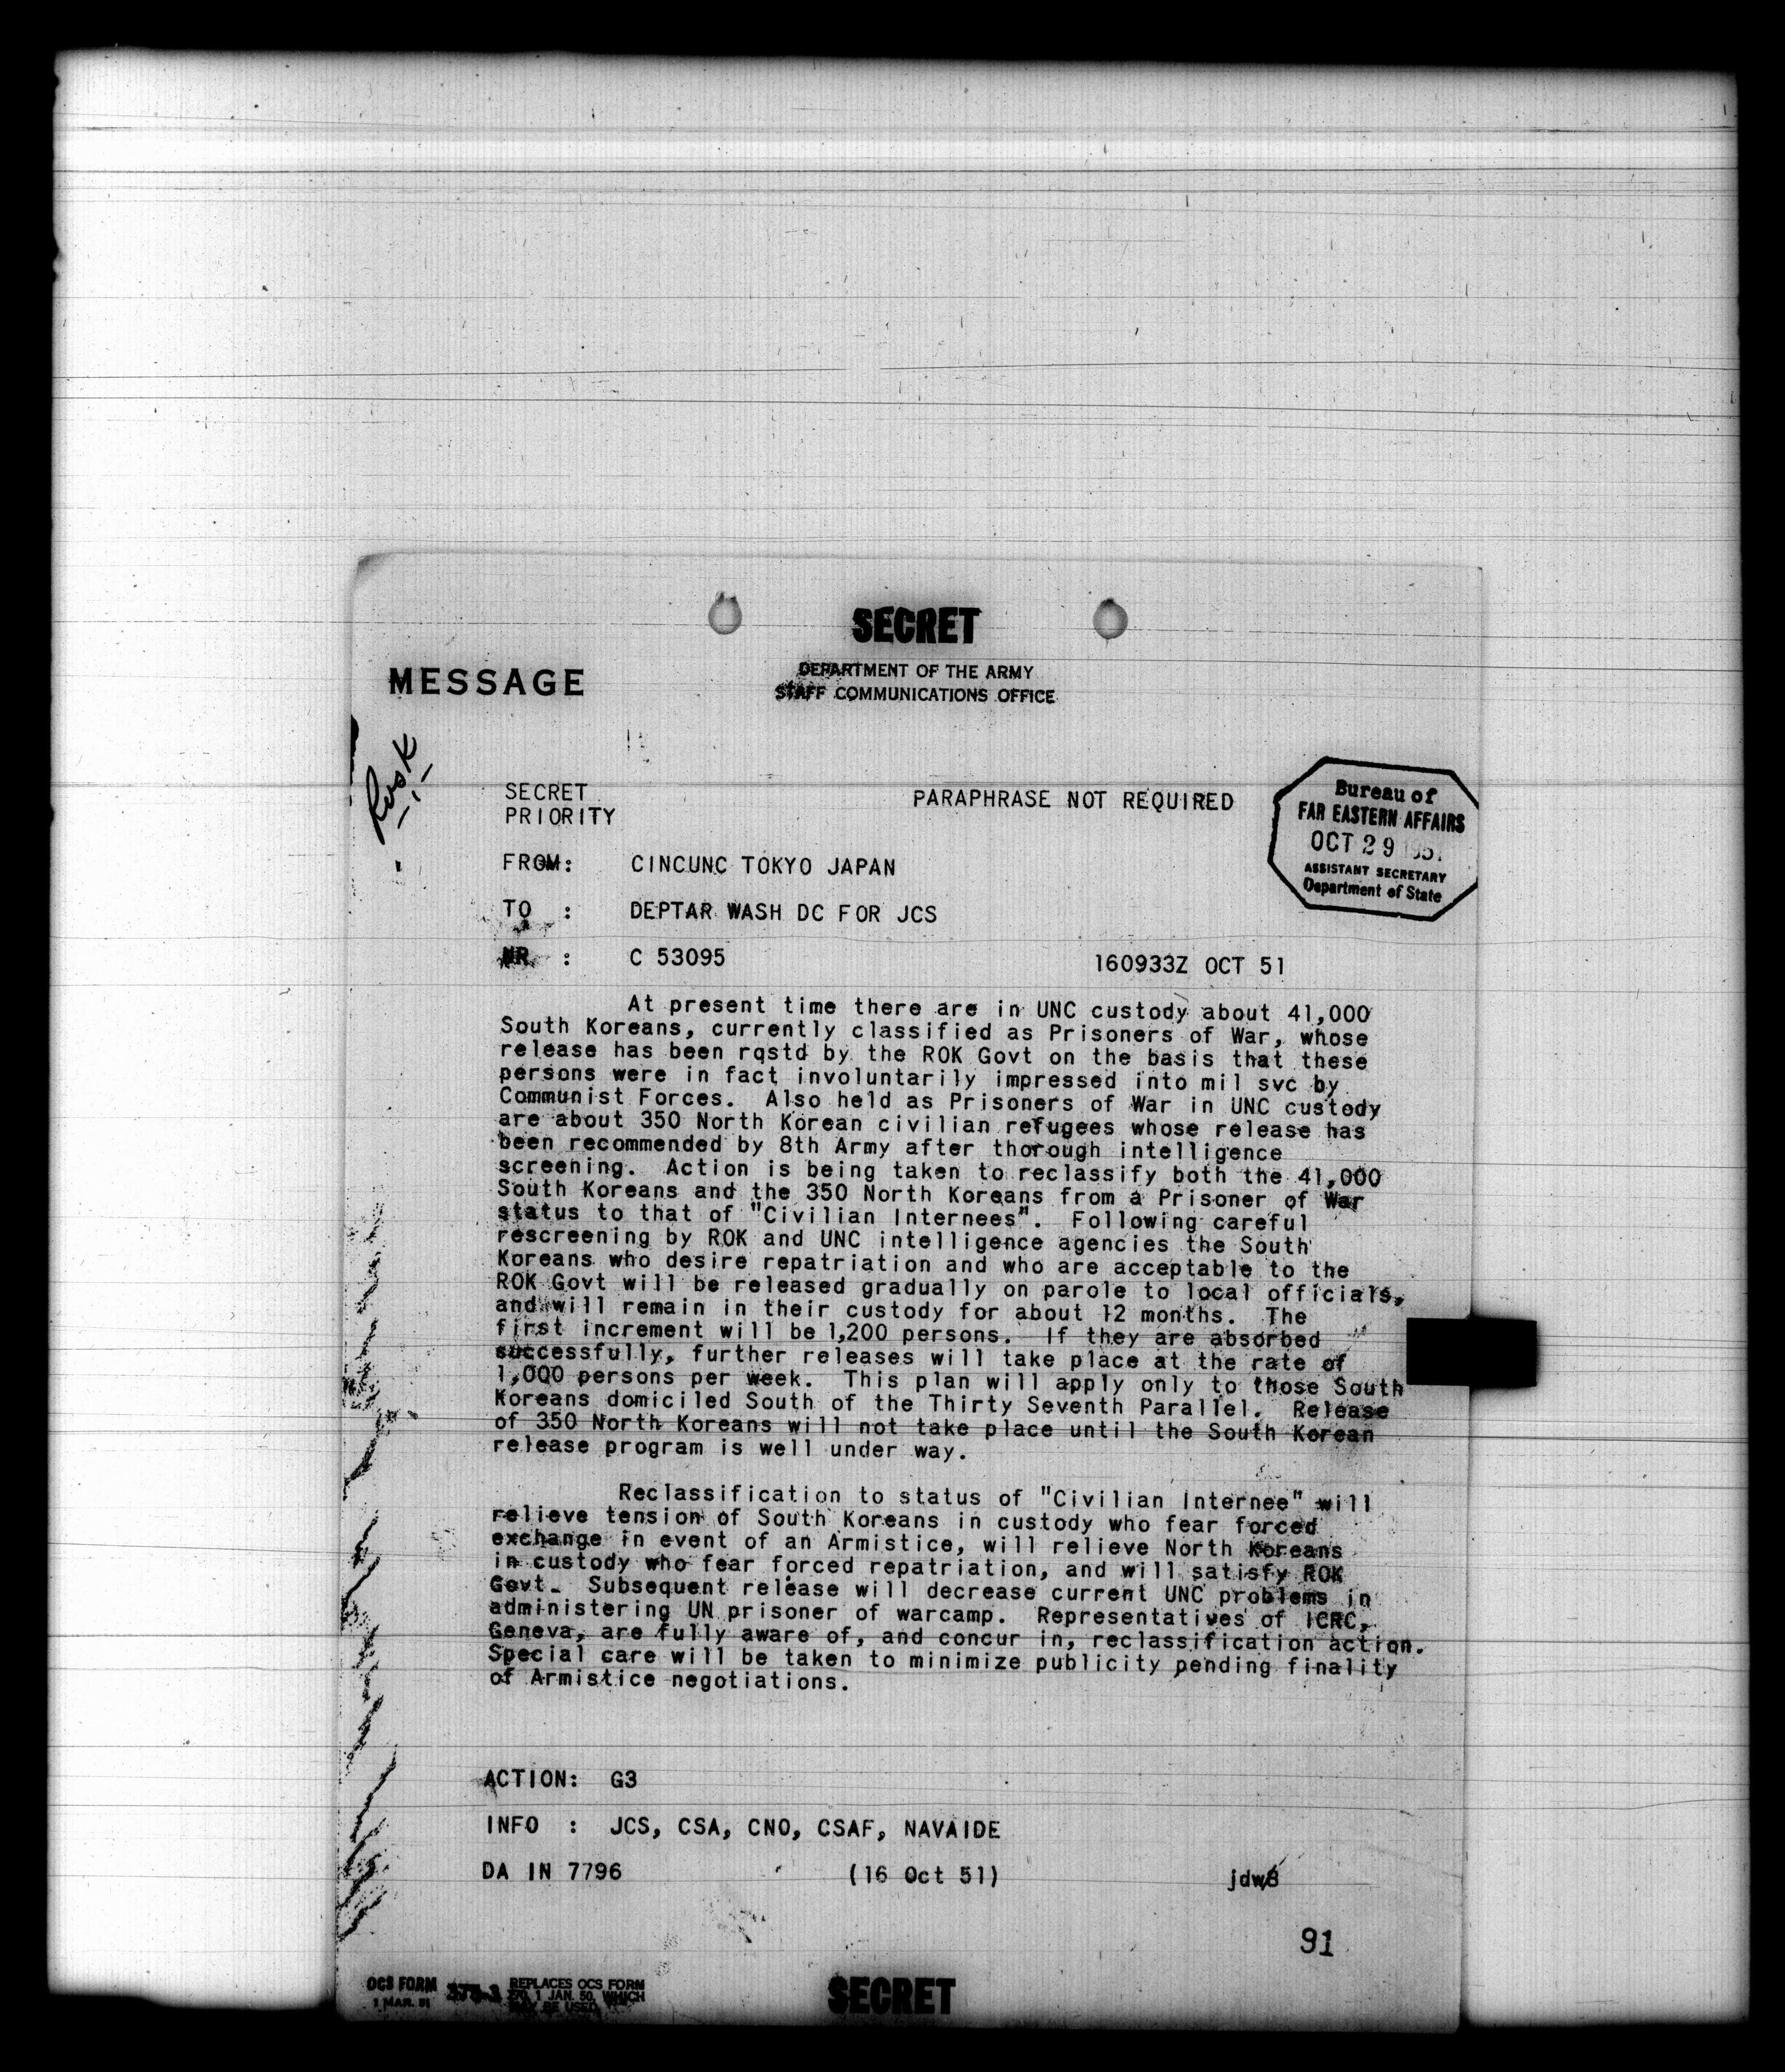 SECRET
DEPARTMENT OF THE ARMY
STAFF COMMUNICATIONS OFFICE
MESSAGE
Rusk
SECRET
PRIORITY
PARAPHRASE NOT REQUIRED
Bureau of
FAR EASTERN AFFAIRS
OCT 29 1951
ASSISTANT SECRETARY
Department of State
FROM: CINCUNC TOKYO JAPAN
TO : DEPTAR WASH DC FOR JCS
NR : C 53095 160933Z OCT 51
At present time there are in UNC custody about 41,000
South Koreans, currently classified as Prisoners of War, whose
release has been rqstd by the ROK Govt on the basis that these
persons were in fact involuntarily impressed into mil svc by
Communist Forces. Also held as Prisoners of War in UNC custody
are about 350 North Korean civilian refugees whose release has
been recommended by 8th Army after thorough intelligence
screening. Action is being taken to reclassify both the 41,000
South Koreans and the 350 North Koreans from a Prisoner of War
status to that of "Civilian Internees". Following careful
rescreening by ROK and UNC intelligence agencies the South
Koreans who desire repatriation and who are acceptable to the
ROK Govt will be released gradually on parole to local officials,
and will remain in their custody for about 12 months. The
first increment will be 1,200 persons. If they are absorbed
successfully, further releases will take place at the rate of
1,000 persons per week. This plan will apply only to those South
Koreans domiciled South of the Thirty Seventh Parallel. Release
of 350 North Koreans will not take place until the South Korean
release program is well under way.
Reclassification to status of "Civilian Internee" will
relieve tension of South Koreans in custody who fear forced
exchange in event of an Armistice, will relieve North Koreans
in custody who fear forced repatriation, and will satisfy ROK
Govt. Subsequent release will decrease current UNC problems in
administering UN prisoner of warcamp. Representatives of ICRC,
Geneva, are fully aware of, and concur in, reclassification action.
Special care will be taken to minimize publicity pending finality
of Armistice negotiations.
ACTION: G3
INFO : JCS, CSA, CNO, CSAF, NAVAIDE
DA IN 7796 (16 Oct 51) jdw8
91
OCS FORM 375-3 REPLACES OCS FORM
1 MAR. 51 370, 1 JAN. 50, WHICH
MAY BE USED.
SECRET